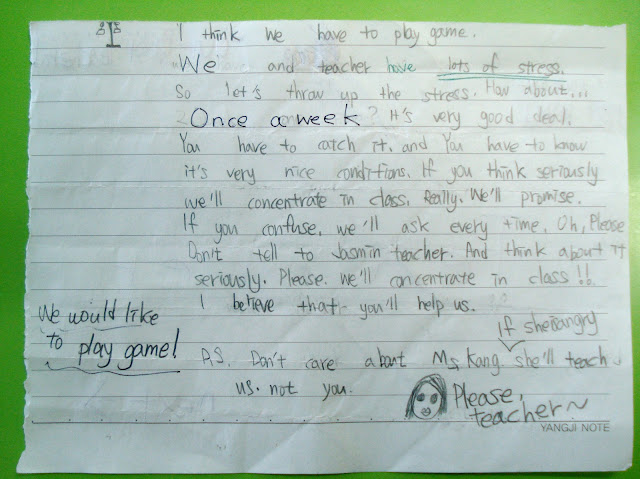 I think we have to play game.
We and teacher have lots of stress.
So let's throw up the stress. How about...
Once a week? It's very good deal.
You have to catch it. and You have to know
it's very nice conditions. If you think seriously
we'll concentrate in class. Really. We'll promise.
If you confuse, we'll ask every time. Oh, Please
Don't tell to Jasmin teacher. And think about it
seriously. Please. we'll concentrate in class!!.
I believe that you'll help us.
We would like
to play game!
if she is angry
P.S. Don't care about Ms. Kang. she'll teach
us. not you.
Please,
teacher~
YANGJI NOTE